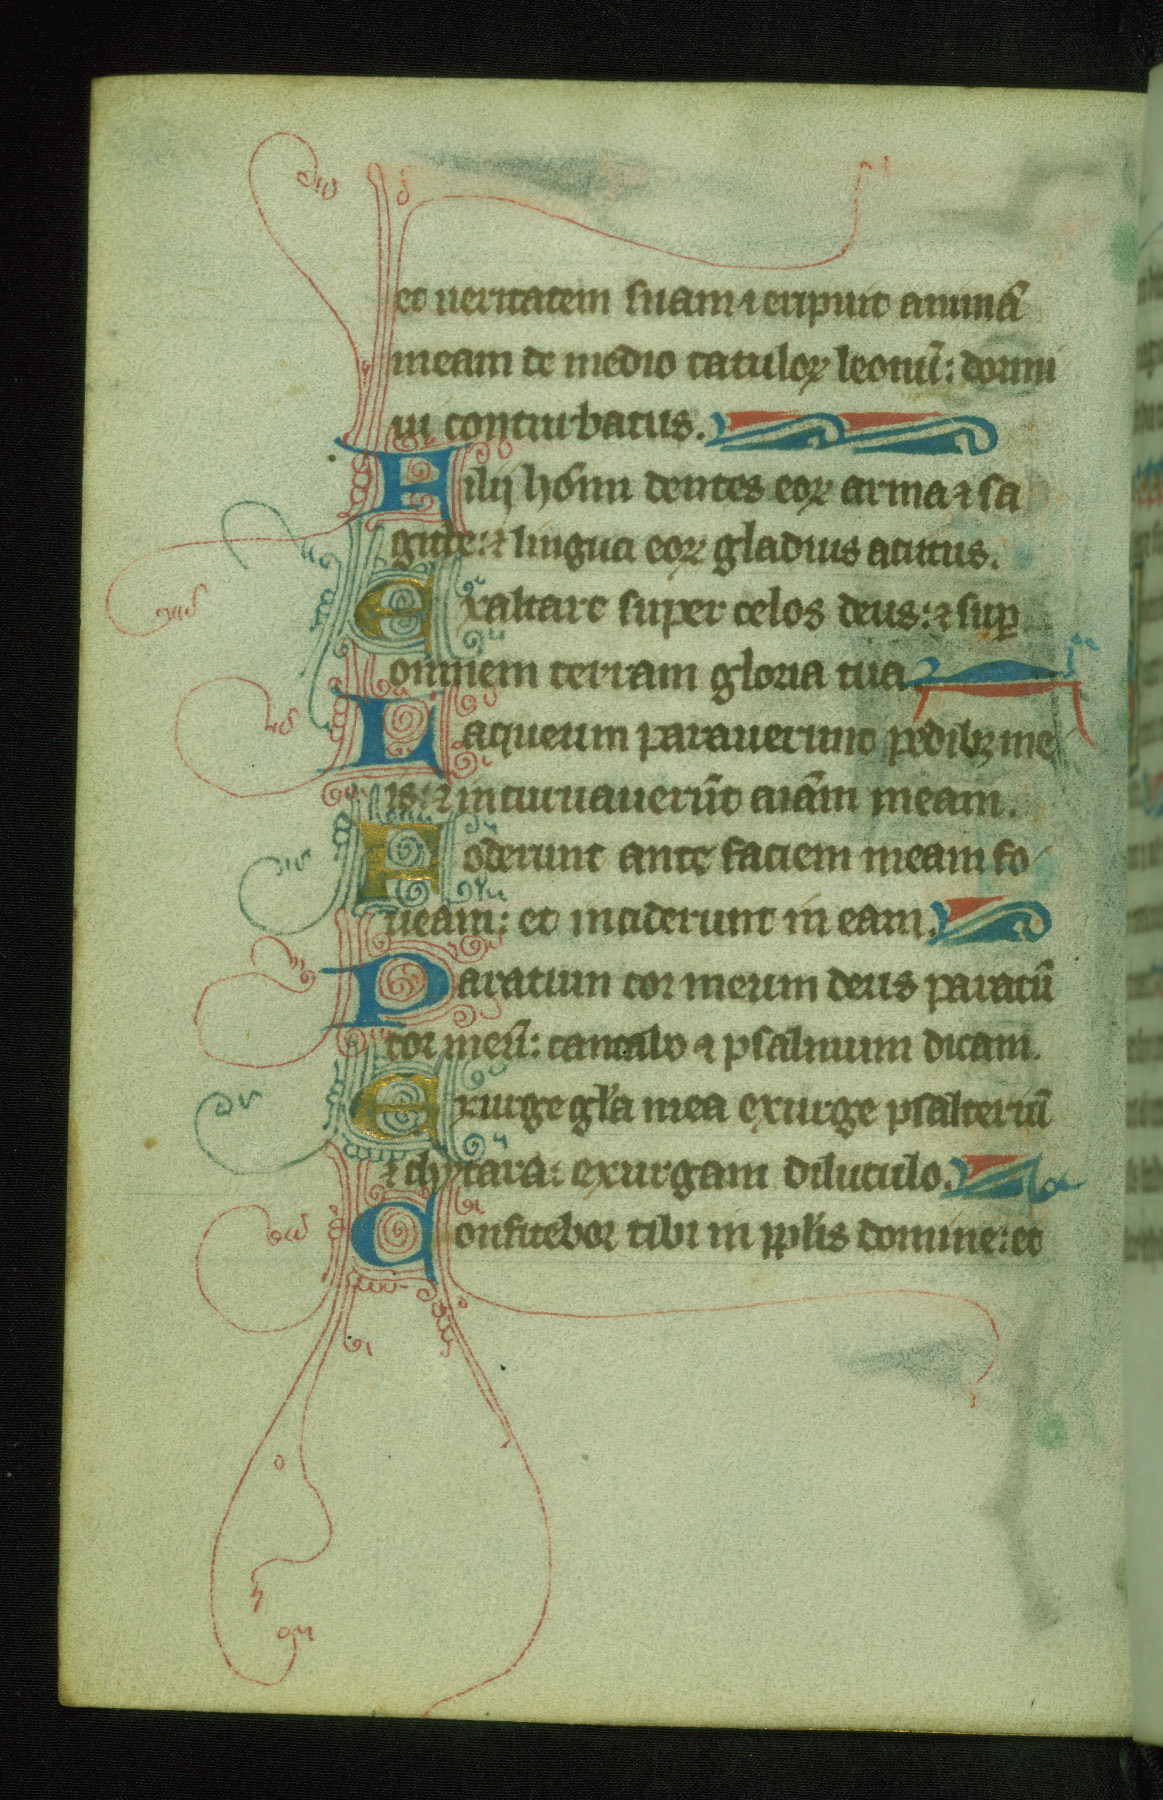 et ueritatem suam ⁊ eripuit animã
meam de medio catuloꝝ leonũ: dormi
ui conturbatus.
Filij hoĩm dentes eoꝝ arma ⁊ sa
gitte: ⁊ lingua eoꝝ gladius acutus.
Exaltare super celos deus: ⁊ suꝑ
omnem terram gloria tua
Laqueum parauerunt pedibꝫ me
is: ⁊ incuruauerũt aĩam meam.
Foderunt ante faciem meam fo
ueam: et inciderunt in eam.
Paratum cor meum deus paratũ
cor meũ: cantabo ⁊ psalmum dicam.
Exurge gl̃a mea exurge psalteriũ
⁊ cythara: exurgam diluculo.
Confitebor tibi in ppl̃is domine: et